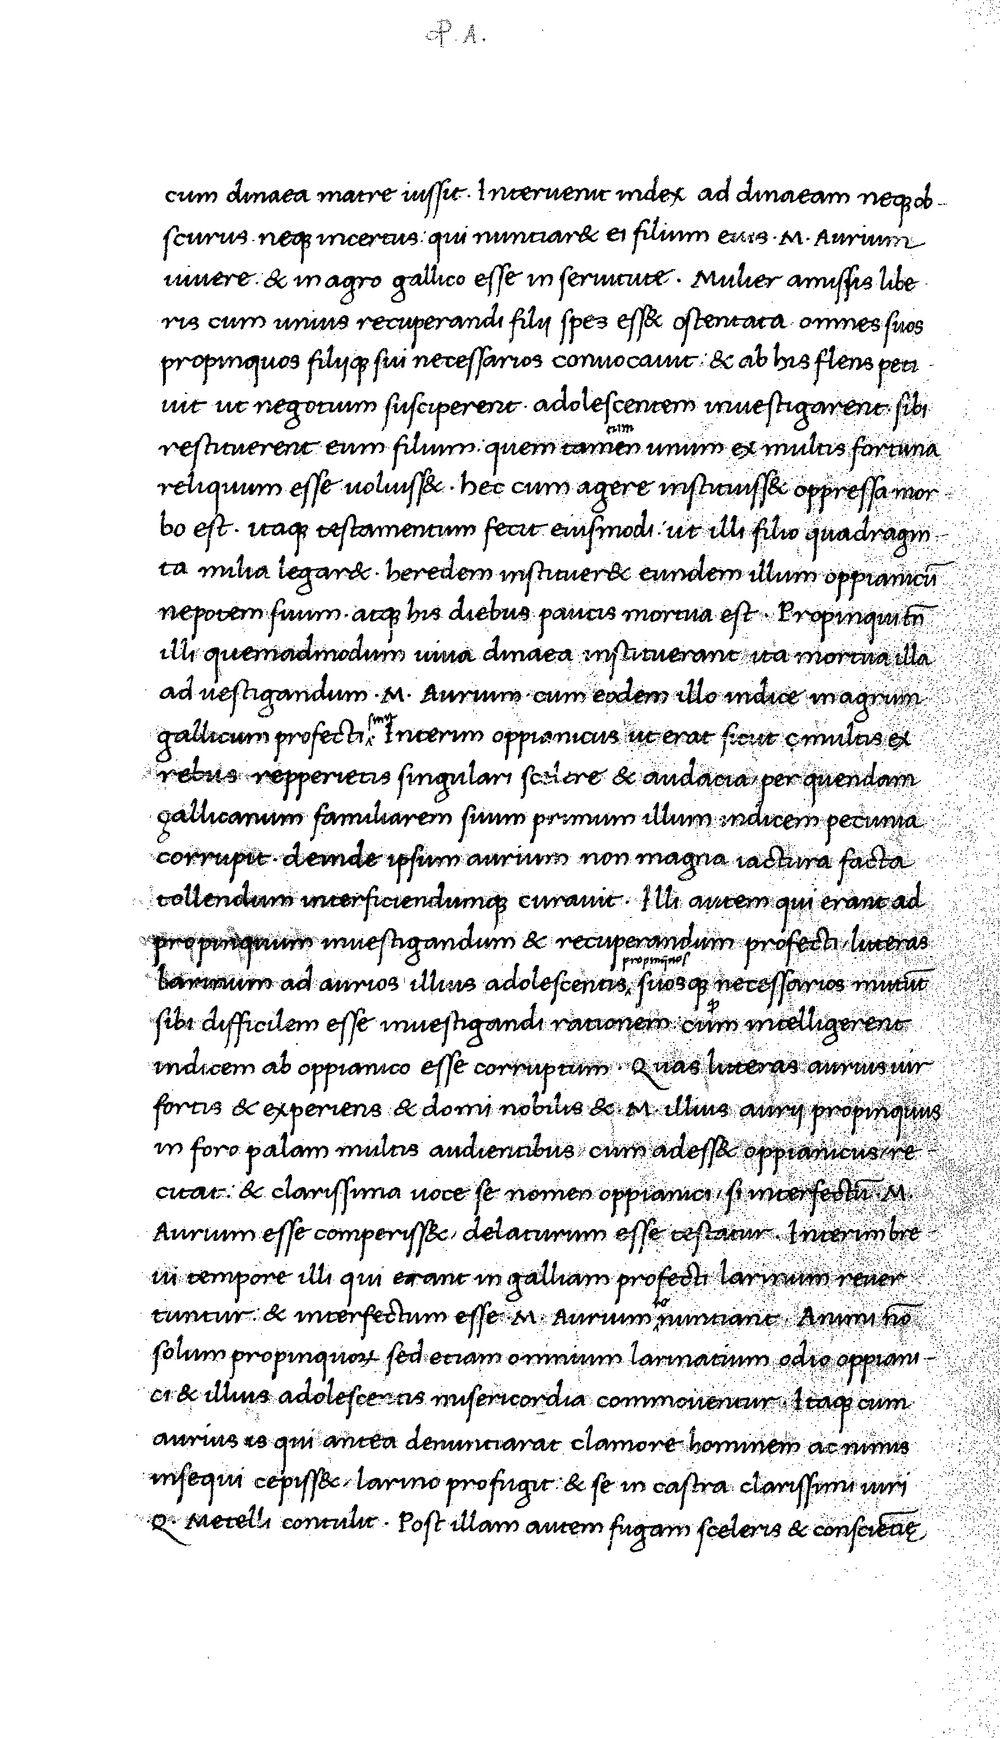 P. A.
cum dinaea matre iussit. Interuenit index ad dinaeam neqꝫ ob-
scurus. neqꝫ incertus: qui nuntiar& ei filium eius .M. Aurium
uiuere. & in agro gallico esse in seruitute. Mulier amissis libe
ris cum unius recuperandi filij spes ess& ostentata. omnes suos
propinquos filijqꝫ sui necessarios conuocauit: & ab his flens peti
uit ut negotium susciperent. adolescentem inuestigarent. sibi
restituerent eum filium. quem tamen unum ex multis fortuna
cum
reliquum esse uoluiss&. hec cum agere instituiss& oppressa mor
bo est. itaqꝫ testamentum fecit eiusmodi: ut illi filio quadragin-
ta milia legar&. heredem instituer& eundem illum oppianicū
nepotem suum. atqꝫ his diebus paucis mortua est. Propinqui tn̄
illi quemadmodum uiua dinaea instituerant ita mortua illa
ad uestigandum .M. Aurium cum eodem illo indice in agrum
gallicum profecti. Interim oppianicus ut erat sicut ę multis ex
rebus repperietis singulari scelere & audacia per quendam
gallicanum familiarem suum primum illum indicem pecunia
corrupit. deinde ipsum aurium non magna iactura facta
tollendum interficiendumqꝫ curauit. Illi autem qui erant ad
propinquum inuestigandum & recuperandum profecti / litteras
larinum ad aurios illius adolescentis, suosqꝫ necessarios mittūt
propinquos
sibi difficilem esse inuestigandi rationem cum intelligerent
indicem ab oppianico esse corruptum. Quas litteras aurius uir
fortis & experiens & domi nobilis & .M. illius aurij propinquus
in foro palam multis audientibus / cum adess& oppianicus / re-
citat: & clarissima uoce se nomen oppianici / si interfectū .M.
Aurium esse comperiss& / delaturum esse testatur. Interim bre-
ui tempore illi qui erant in galliam profecti larinum reuer
tuntur: & interfectum esse .M. Aurium nuntiant. Animi nō
solum propinquoꝝ sed etiam omnium larinatium odio oppiani-
ci & illius adolescentis misericordia commouentur. Itaqꝫ cum
aurius is qui antea denuntiarat clamore hominem ac minis
insequi cepiss& / larino profugit: & se in castra clarissimi uiri
Q. Metelli contulit. Post illam autem fugam sceleris & consciētię